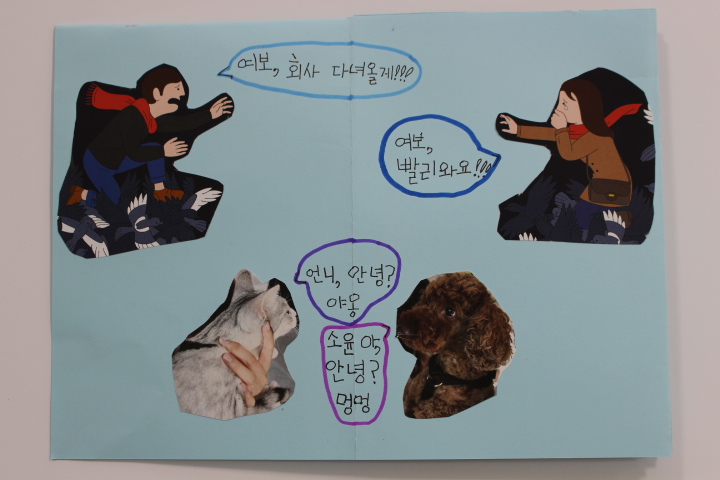 여보, 회사 다녀올게!!!
여보,
빨리와요!!!
언니, 안녕?
야옹
소윤아,
안녕?
멍멍